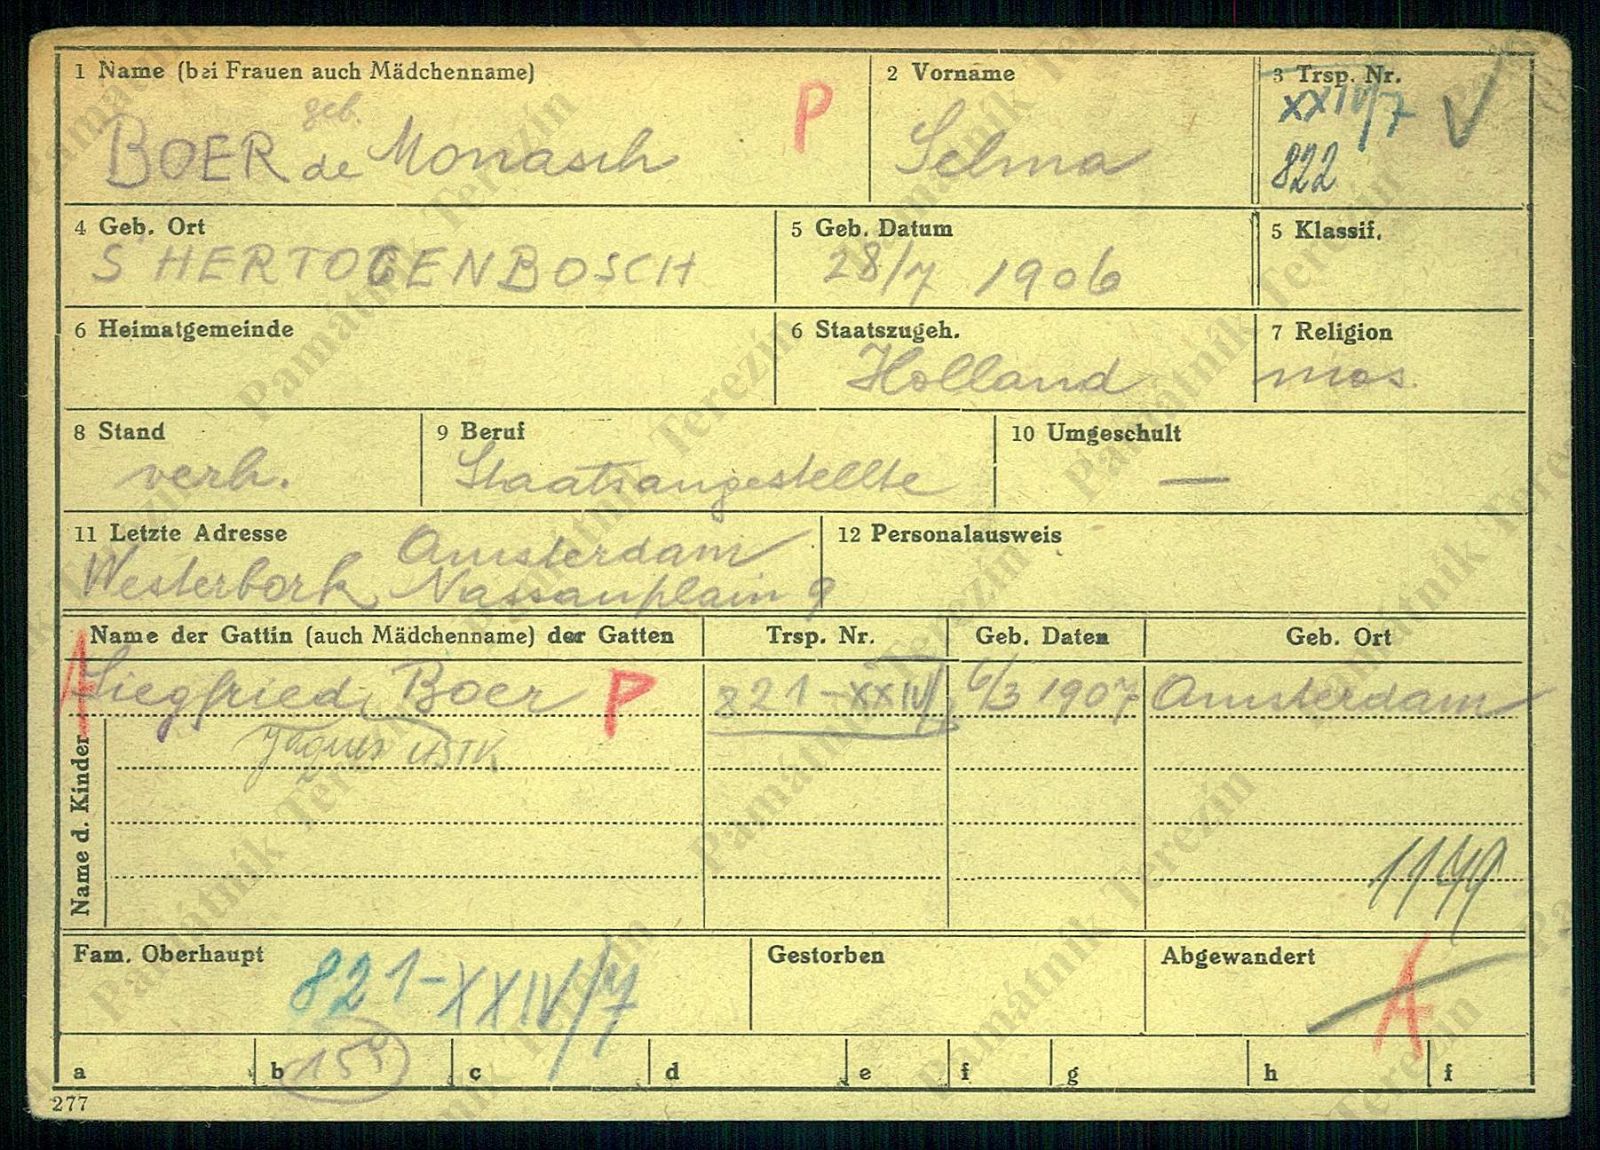 1 Name (bei Frauen auch Mädchenname)
geb.
BOER de Monasch
P
2 Vorname
Selma
3 Trsp. Nr.
XXIV/7
822
4 Geb. Ort
S HERTOGENBOSCH
5 Geb. Datum
28/7 1906
5 Klassif.
6 Heimatgemeinde
6 Staatszugeh.
Holland
7 Religion
mos.
8 Stand
verh.
9 Beruf
Staatsangestellte
10 Umgeschult
—
11 Letzte Adresse
Amsterdam
Westerbork Nassauplain 9
12 Personalausweis
Name der Gattin (auch Mädchenname) der Gatten
Trsp. Nr.
Geb. Daten
Geb. Ort
A
Siegfried Boer P
821-XXIV/7
6/3 1907
Amsterdam
Name d. Kinder
1149
Fam. Oberhaupt
821-XXIV/7
Gestorben
Abgewandert
A
a b c d e f g h f
159
277
Památník Terezín